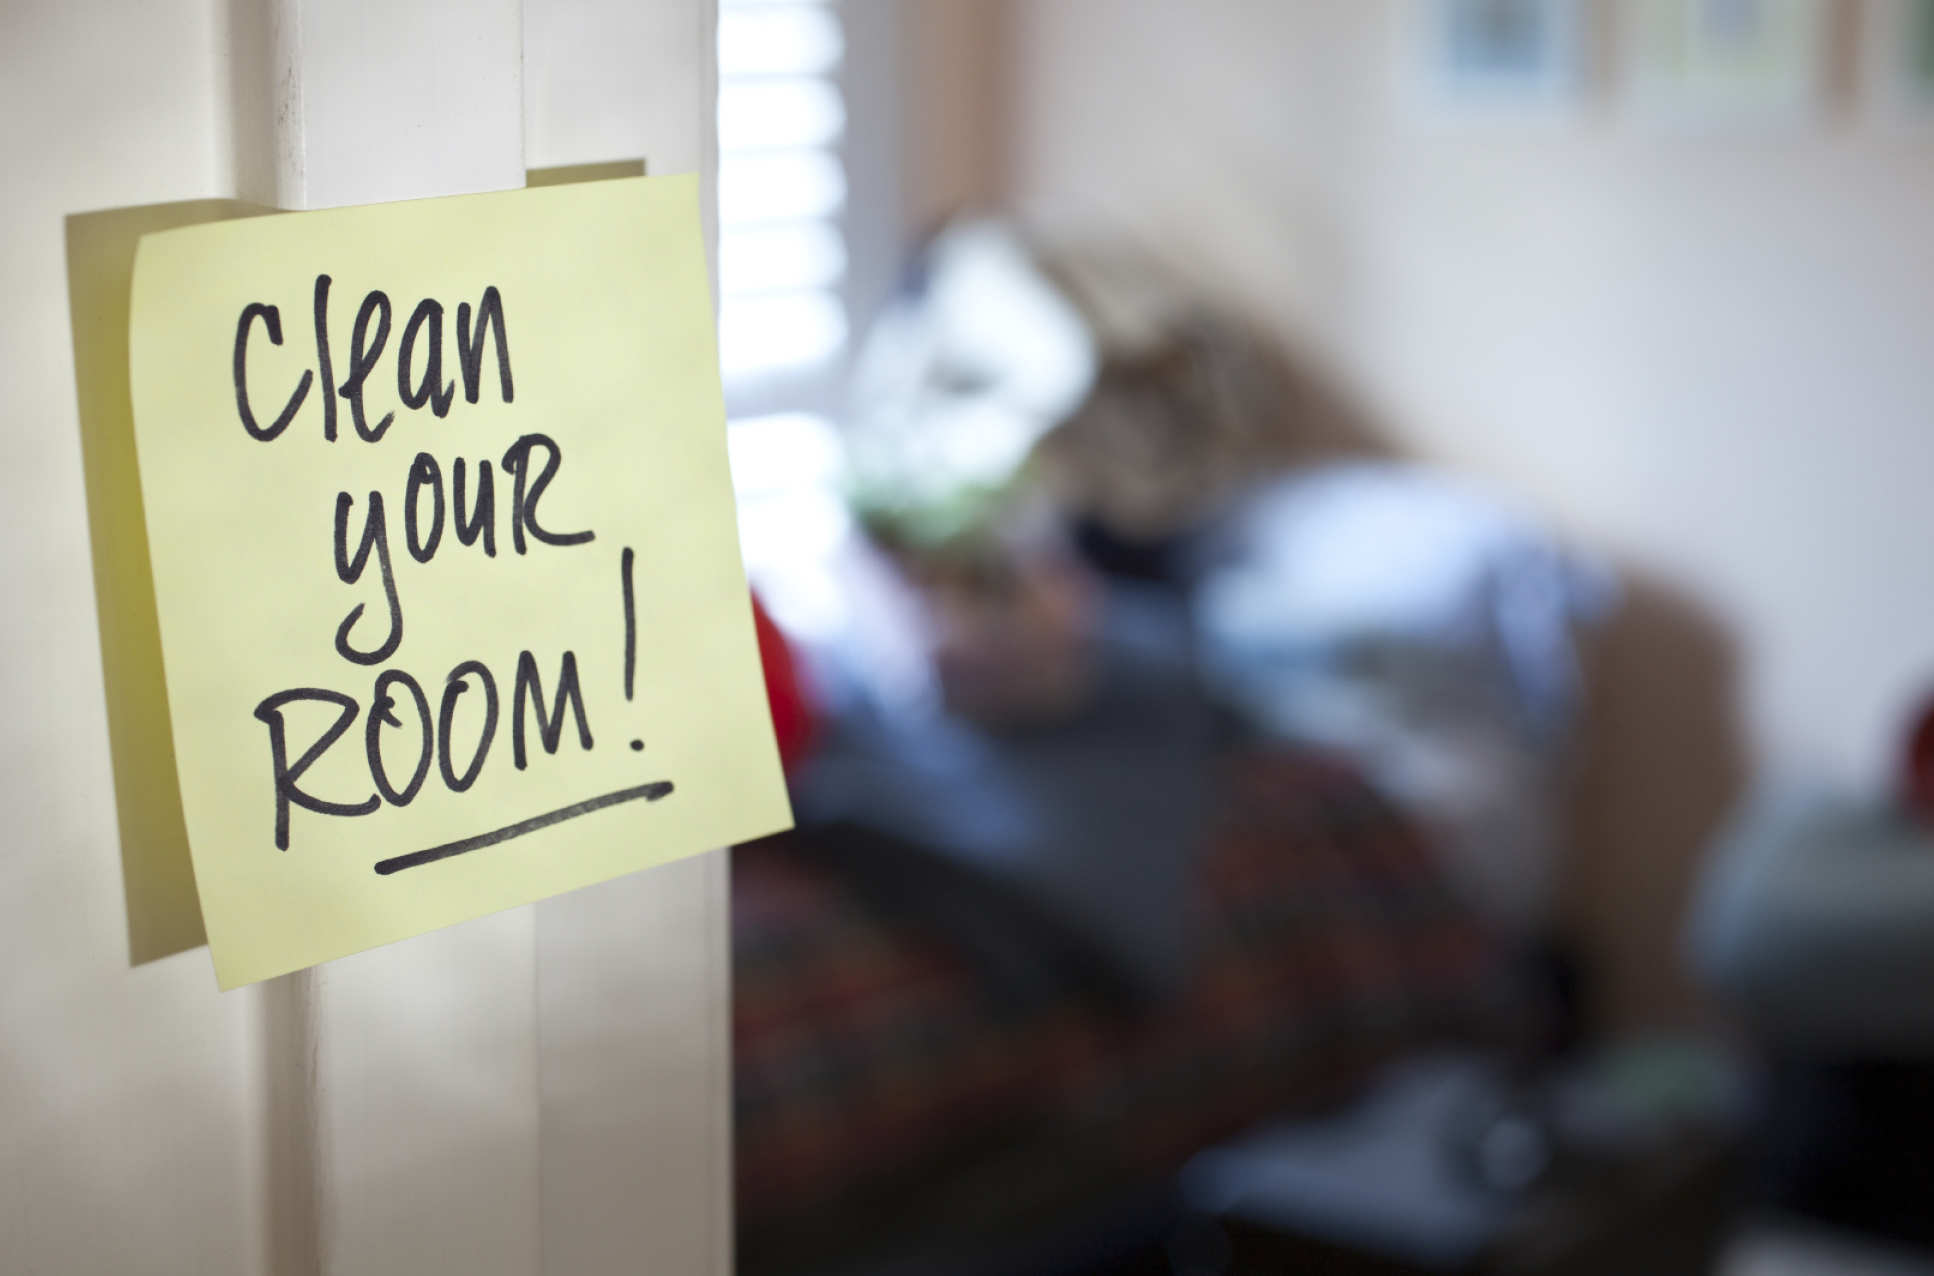 Clean
your
ROOM!